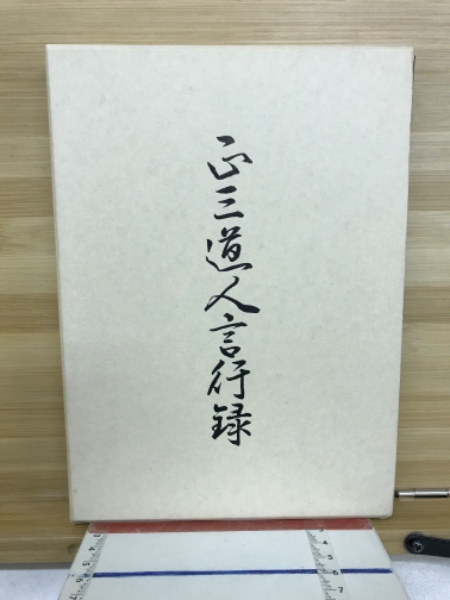 正三道人言行録